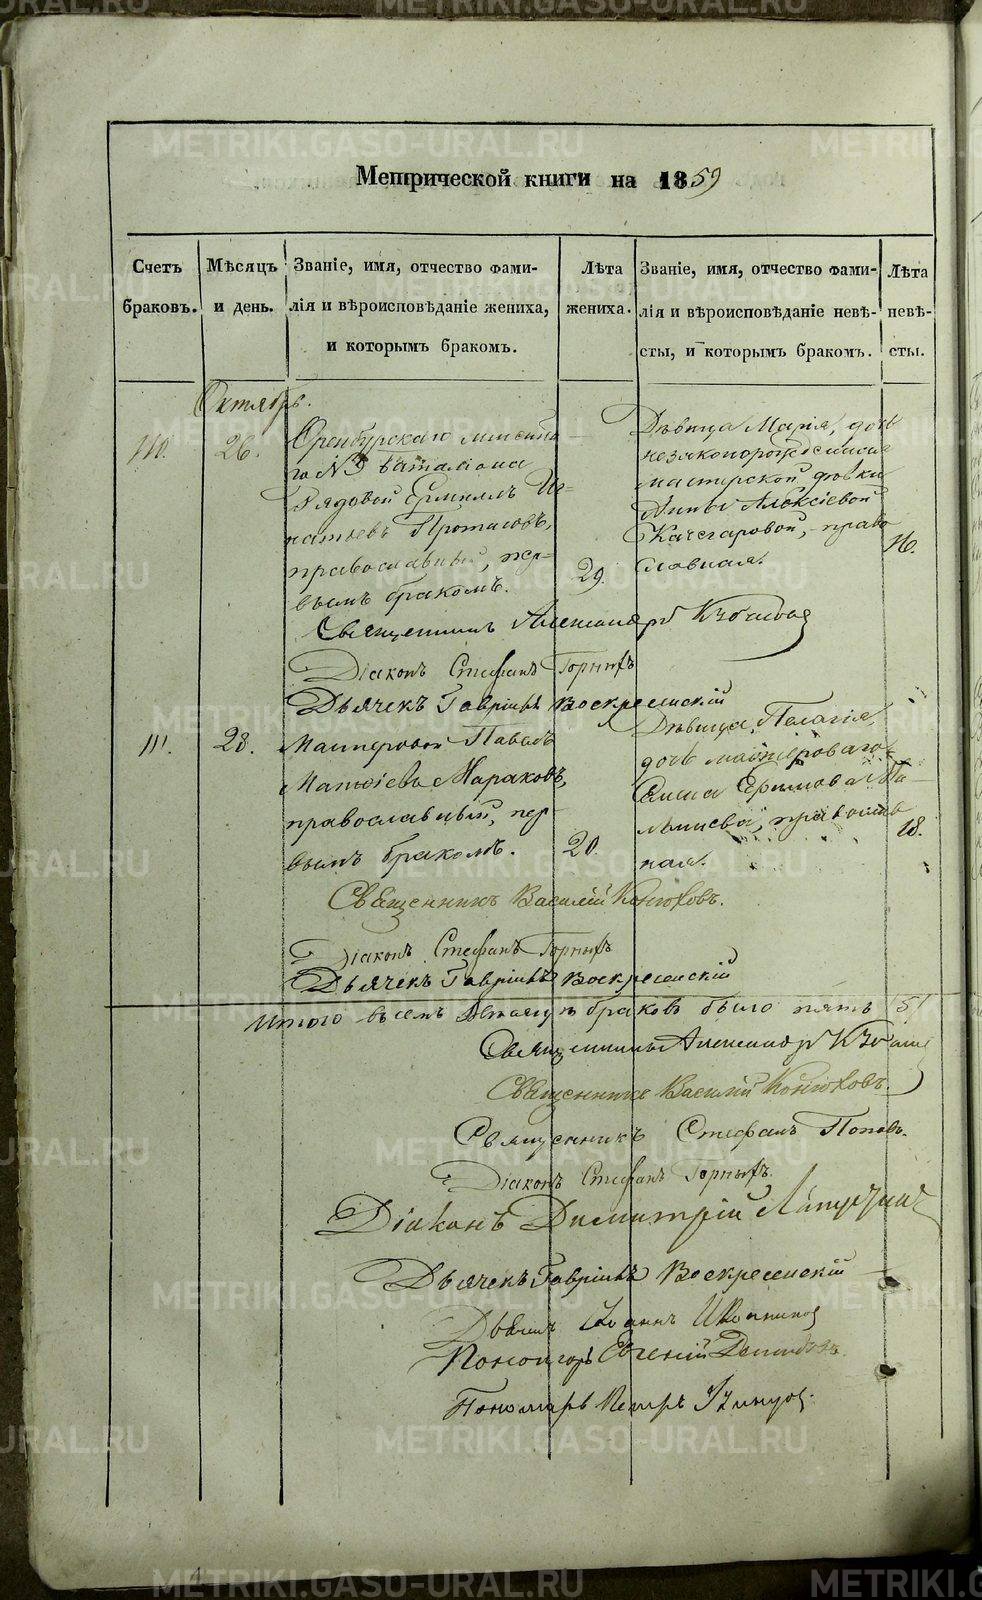 METRIKI.GASO-URAL.RU
Метрической книги на 1859
Счетъ браковъ.
Мѣсяцъ и день.
Званіе, имя, отчество фами-
лія и вѣроисповѣданіе жениха,
и которымъ бракомъ.
Лѣта жениха.
Званіе, имя, отчество фами-
лія и вѣроисповѣданіе невѣ-
сты, и которымъ бракомъ.
Лѣта невѣ-
сты.
Октябрь.
110.
26.
Оренбургскаго линейна
го № баталіона
Рядовой Ермилъ Иг-
натьевъ Протасовъ,
православный, пер-
вымъ бракомъ.
29.
Дѣвица Марія, дочь
незаконорожденная
мастерской дѣвки
Анны Алексіевой
Качегаровой, право
славная.
Священникъ Александръ
Діаконъ Стефанъ Горныхъ
Дьячекъ Гавріилъ Воскресенскій
111.
28.
Мастеровой Павелъ
Матвіевъ Мараковъ,
православный, пер
вымъ бракомъ.
20.
Дѣвица, Пелагія,
дочь мастероваго
Ефимова
православ
ная.
18.
Священникъ Василій Конюховъ.
Діаконъ Стефанъ Горныхъ
Дьячекъ Гавріилъ Воскресенскій
Итого всемъ браковъ было пять /5/
Священникъ Александръ
Священникъ Василій Конюховъ.
Священникъ Стефанъ Поповъ.
Діаконъ Стефанъ Горныхъ.
Діаконъ Димитрій
Дьячекъ Гавріилъ Воскресенскій
Іоаннъ
Пономарь Евгеній
Пономарь Петръ